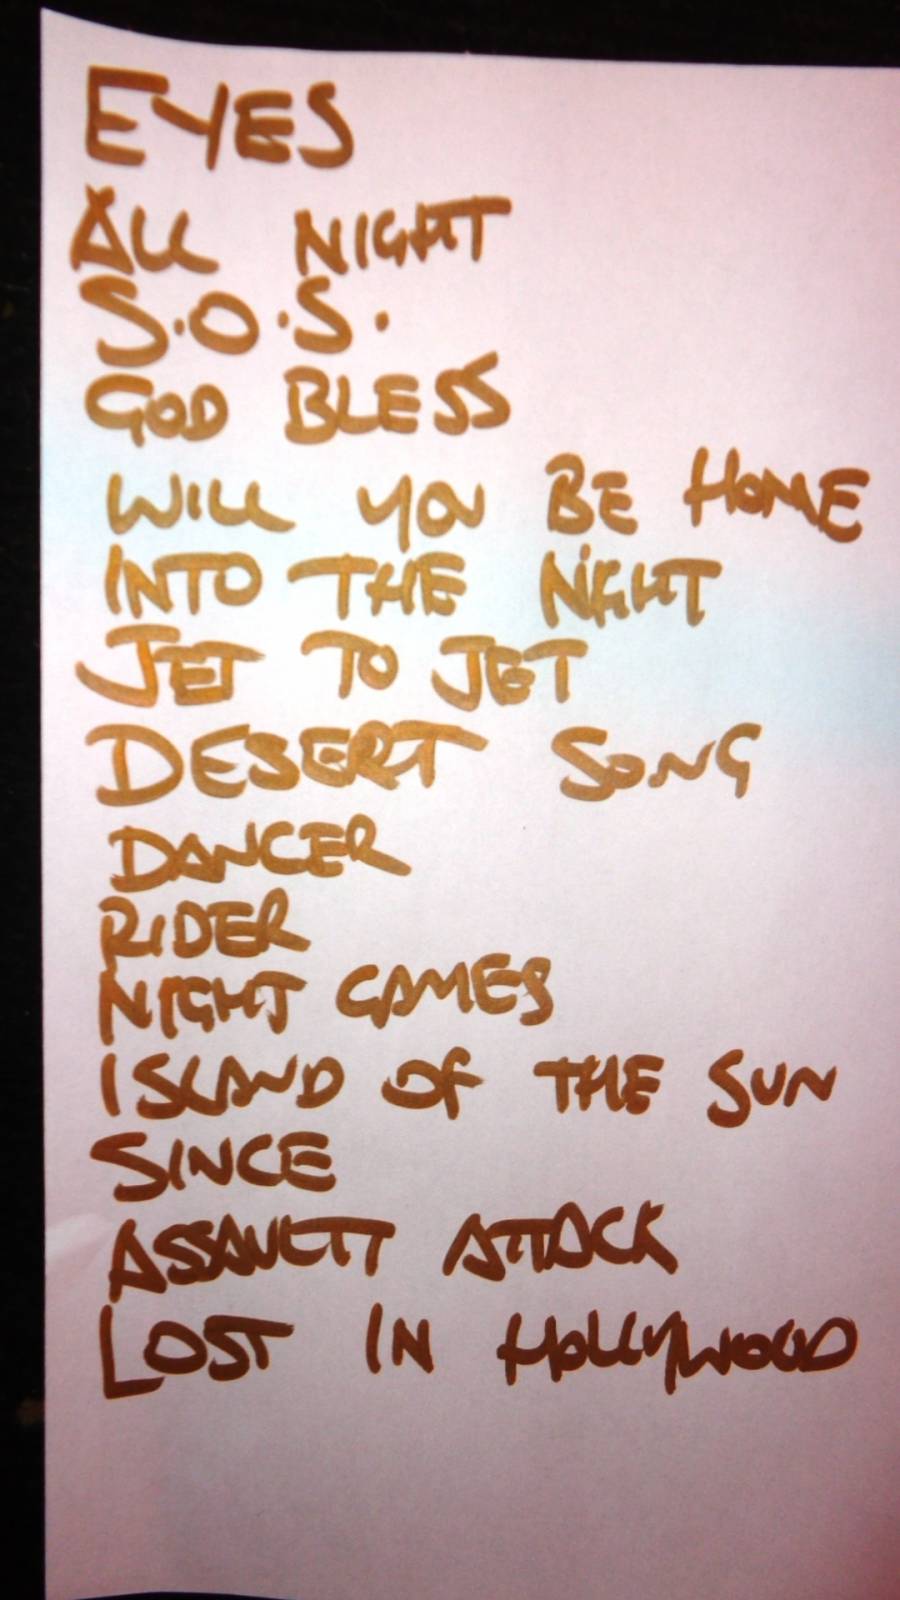 EYES
ALL NIGHT
S.O.S.
GOD BLESS
WILL YOU BE HOME
INTO THE NIGHT
JET TO JET
DESERT SONG
DANCER
RIDER
NIGHT GAMES
ISLAND OF THE SUN
SINCE
ASSAULT ATTACK
LOST IN HOLLYWOOD